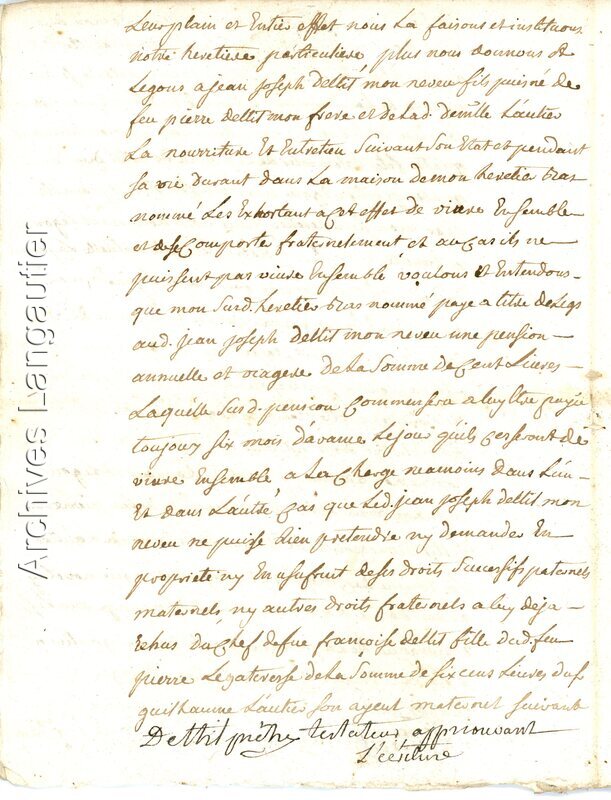 Leur plain et Entier effet nous La faisons et instituons
notre heretiere particuliere, plus nous donnons et
Legons a jean joseph Deltil mon neveu fils puisné de
feu pierre deltil mon frere et de lad. demlle Lautier
La nourriture Et Entretien Suivant Son Etat et pendant
sa vie durant dans La maison de mon heretier bas
nommé Les Exhortant a cet effet de vivre Ensemble
et de se Comporte fraternelement et au cas ils ne
puissent pas vivre Ensemble voulons et Entendons
que mon Surd. heretier bas nommé paye a titre de Legs
aud. jean joseph deltil mon neveu une pension
annuelle et viagere de La Somme de Cent Livres
Laquelle Susd. pension Commensera a luy Etre payée
toujours six mois d'avance Le jour quils cesseront de
vivre Ensemble a La Charge neamoins dans L'un
Et dans L'autre Cas que Led. jean joseph deltil mon
neveu ne puisse Rien pretendre ny demander En
proprieté ny En usufruit de ses droits Successifs paternels
maternels ny autres droits fraternels a luy deja
Echus du Chef de fue francoise deltil fille dud. feu
pierre Legateresse de La Somme de six cens Livres du f
guilhaume Lautier son ayeul maternel suivant
Deltil prêtre testateur approuvant
L'ecriture
Archives Langautier